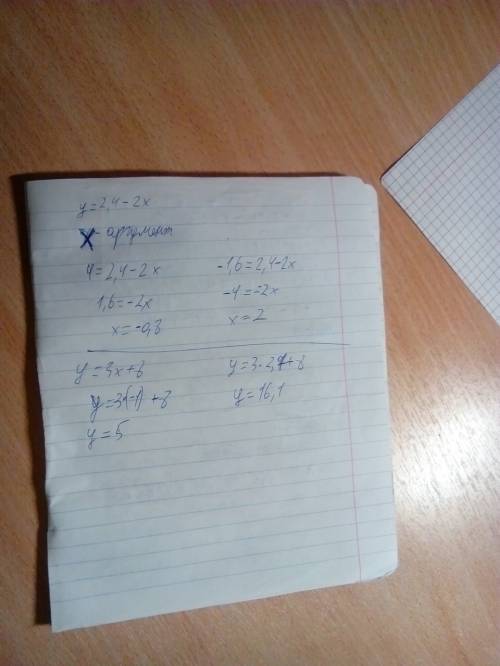 y=2,4-2x
x - аргумент
4=2,4-2x
1,6=-2x
x=-0,8
-1,6=2,4-2x
-4=-2x
x=2
y=3x+8
y=3(-1)+8
y=5
y=3·2,7+8
y=16,1